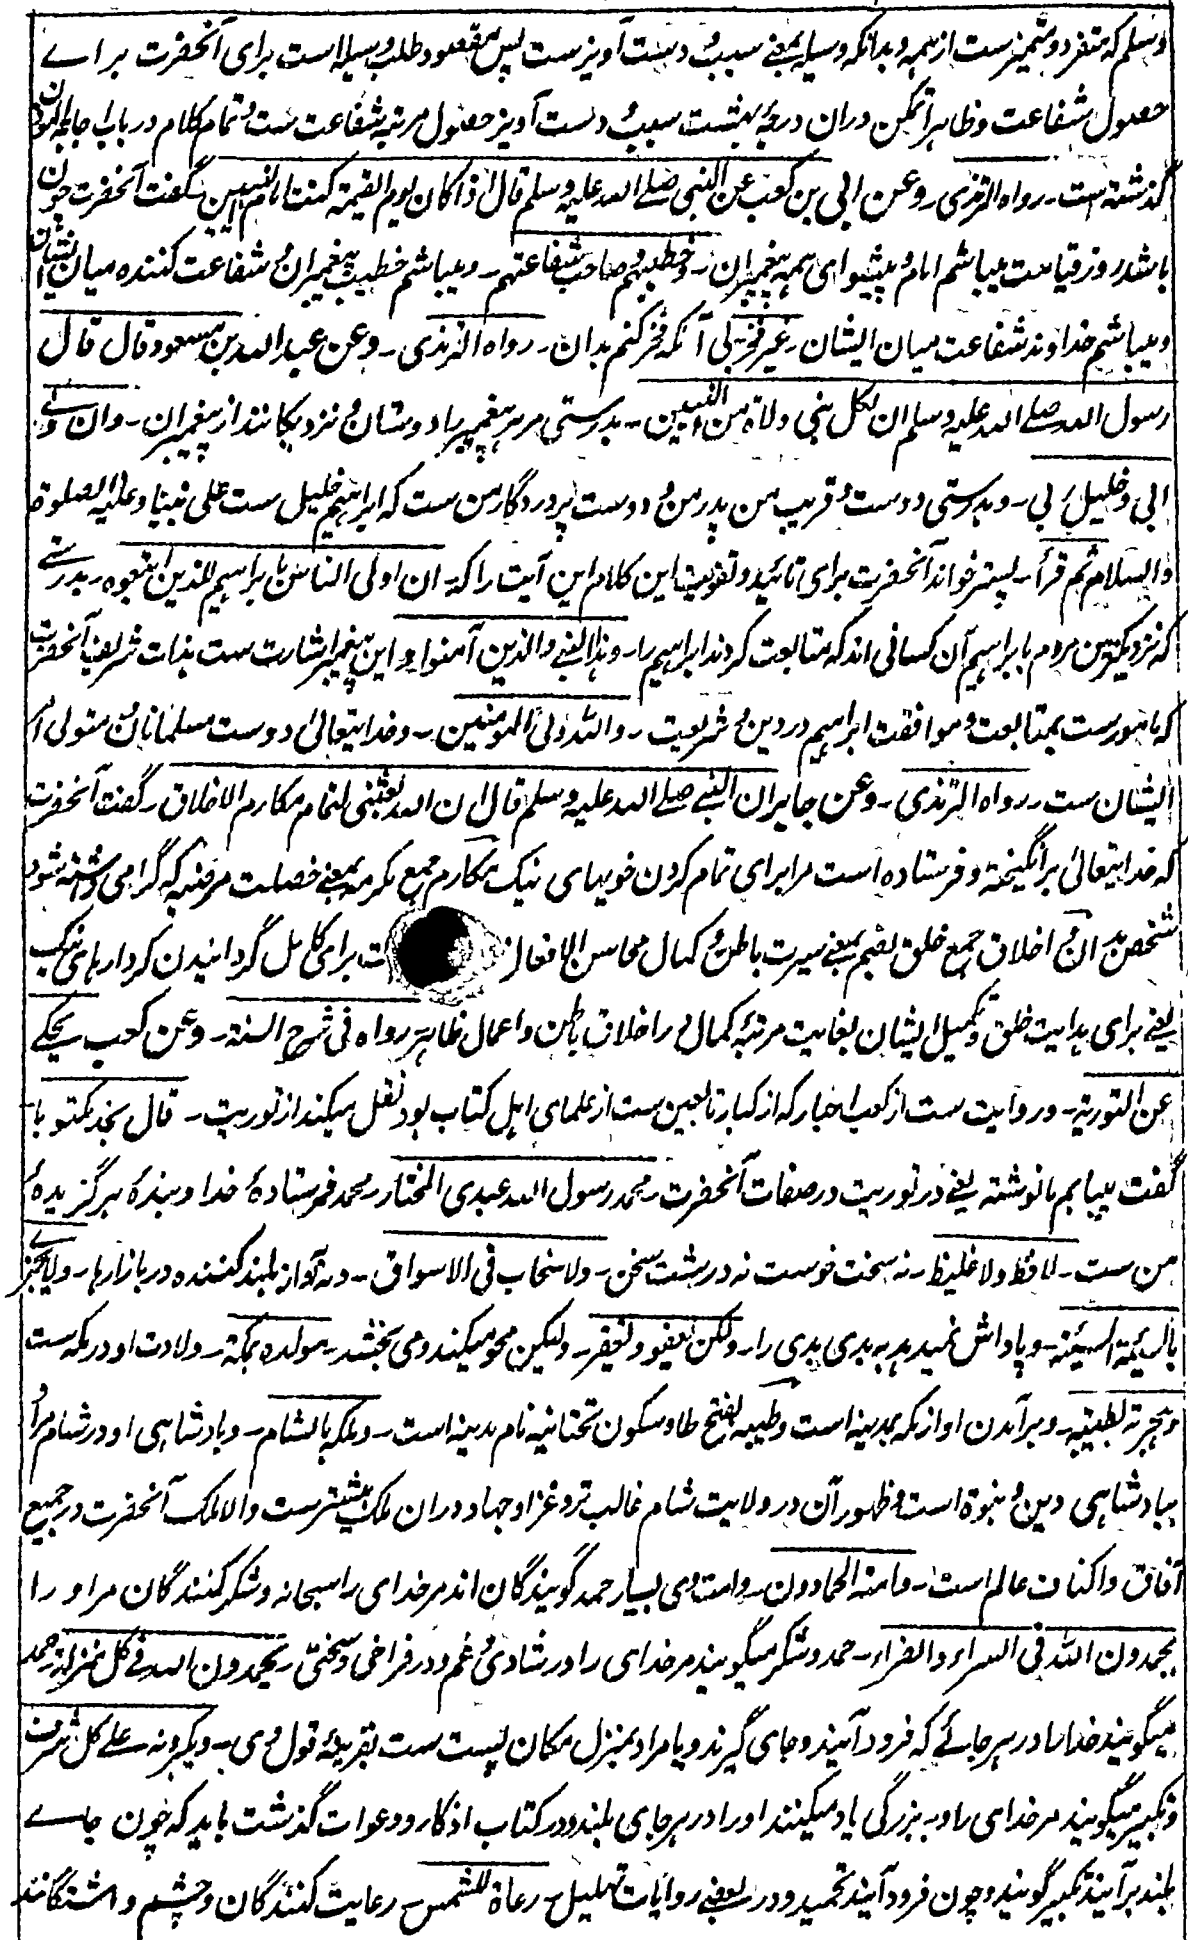 وسلم که متفرد و متمیزست از همه و بدانکه وسیله بمعنے سبب و دست آویزست پس مقصود طلب وسیله است برای آنحضرت براے
حصول شفاعت و ظاهرا تمکن دران درجهٔ بهشت سبب و دست آویز حصول مرتبهٔ شفاعت ست و تمام کلام در باب اجابة الموذن
گذشته است ـ رواه الترمذی ـ وعن ابی بن کعب عن النبی صلے الله علیه وسلم قال اذا کان یوم القیمة کنت امام النبیین گفت آنحضرت چون
باشد روز قیامت میباشم امام و پیشوای همه پیغمبران ـ وخطیبهم وصاحب شفاعتهم ـ و میباشم خطیب پیغمبران و شفاعت کننده میان ایشان
و میباشم خداوند شفاعت میان ایشان ـ غیر فخر ـ بی آنکه فخر کنم بدان ـ رواه الترمذی ـ وعن عبد الله بن مسعود قال قال
رسول الله صلے الله علیه وسلم ان لکل نبی ولاة من النبیین ـ بدرستی مر هر پیغمبر را دوستان و نزدیکانند از پیغمبران ـ وان ولیے
ابی و خلیل ربی ـ و بدرستی دوست و قریب من پدر من و دوست پروردگار من ست که ابراهیم خلیل ست علی نبینا و علیه الصلوة
والسلام ثم قرأ ـ پستر خواند آنحضرت برای تائید و تقویت این کلام این آیت را که ان اولی الناس بابراهیم للذین اتبعوه ـ بدرستے
که نزدیکترین مردم بابراهیم آن کسانی اند که متابعت کردند ابراهیم را ـ وهذا النبے والذین آمنوا و این پیغمبر اشارت ست بذات شریف آنحضرت
که مامورست بمتابعت و موافقت ابراهیم در دین و شریعت ـ والله ولی المومنین ـ و خدایتعالی دوست مسلمانان و متولی امر
ایشان ست ـ رواه الترمذی ـ وعن جابر ان النبے صلے الله علیه وسلم قال ان الله بعثنی لتمام مکارم الاخلاق ـ گفت آنحضرت
که خدایتعالی برانگیخته و فرستاده است مرا برای تمام کردن خویهای نیک مکارم جمع مکرمه بمعنے خصلت مرضیه که گرامی داشته شود
شخص بدان و اخلاق جمع خلق بضم بمعنے سیرت باطن و کمال محاسن الافعال ت برای کامل گردانیدن کردارهای نیک
یعنے برای هدایت خلق و تکمیل ایشان بغایت مرتبهٔ کمال در اخلاق باطن و اعمال ظاهر ـ رواه فی شرح السنة ـ وعن کعب یحکے
عن التوریة ـ و روایت ست از کعب احبار که از کبار تابعین ست از علمای اهل کتاب بود نقل میکند از توریت ـ قال نجد مکتوبا
گفت مییابیم ما نوشته یعنے در توریت در صفات آنحضرت ـ محمد رسول الله عبدی المختار ـ محمد فرستادهٔ خدا و بندهٔ برگزیدهٔ
من ست ـ لا فظ ولا غلیظ ـ نه سخت خوست نه درشت سخن ـ ولا سخاب فی الاسواق ـ و نه آواز بلند کننده در بازارها ـ ولا یجزے
بالسیئة السیئة ـ و پاداش نمیدهد به بدی بدی را ـ ولکن یعفو و یغفر ـ ولیکن محو میکند و می بخشد ـ مولده بمکة ـ ولادت او در مکه ست
وهجرته بطیبة ـ و برآمدن او از مکه بمدینه است و طیبه بفتح طا و سکون تحتانیه نام مدینه است ـ وملکه بالشام ـ و بادشاهی او در شام مراد
ببادشاهی دین و نبوة است و ظهور آن در ولایت شام غالب تر و غزا و جهاد دران ملک بیشترست والا ملک آنحضرت در جمیع
آفاق و اکناف عالم است ـ وامته الحمادون ـ و امت وی بسیار حمد گویندگان اند مر خدای را سبحانه و شکر کنندگان مر او را
یحمدون الله فی السراء والضراء ـ حمد و شکر میگویند مر خدای را در شادی و غم و در فراخی و سختی ـ یحمدون الله فے کل منزلة حمد
میگویند خدا را در هر جائے که فرود آیند و جای گیرند و یا مراد بمنزل مکان پست ست بقرینهٔ قول وی ـ ویکبرونه علے کل شرف
و تکبیر میگویند مر خدای را و به بزرگی یاد میکنند او را در هر جای بلند و در کتاب اذکار و دعوات گذشت باید که چون جاے
بلند برآیند تکبیر گویند و چون فرود آیند تحمید و در بعضے روایات تهلیل ـ رعاة للشمس ـ رعایت کنندگان و چشم داشتگانند